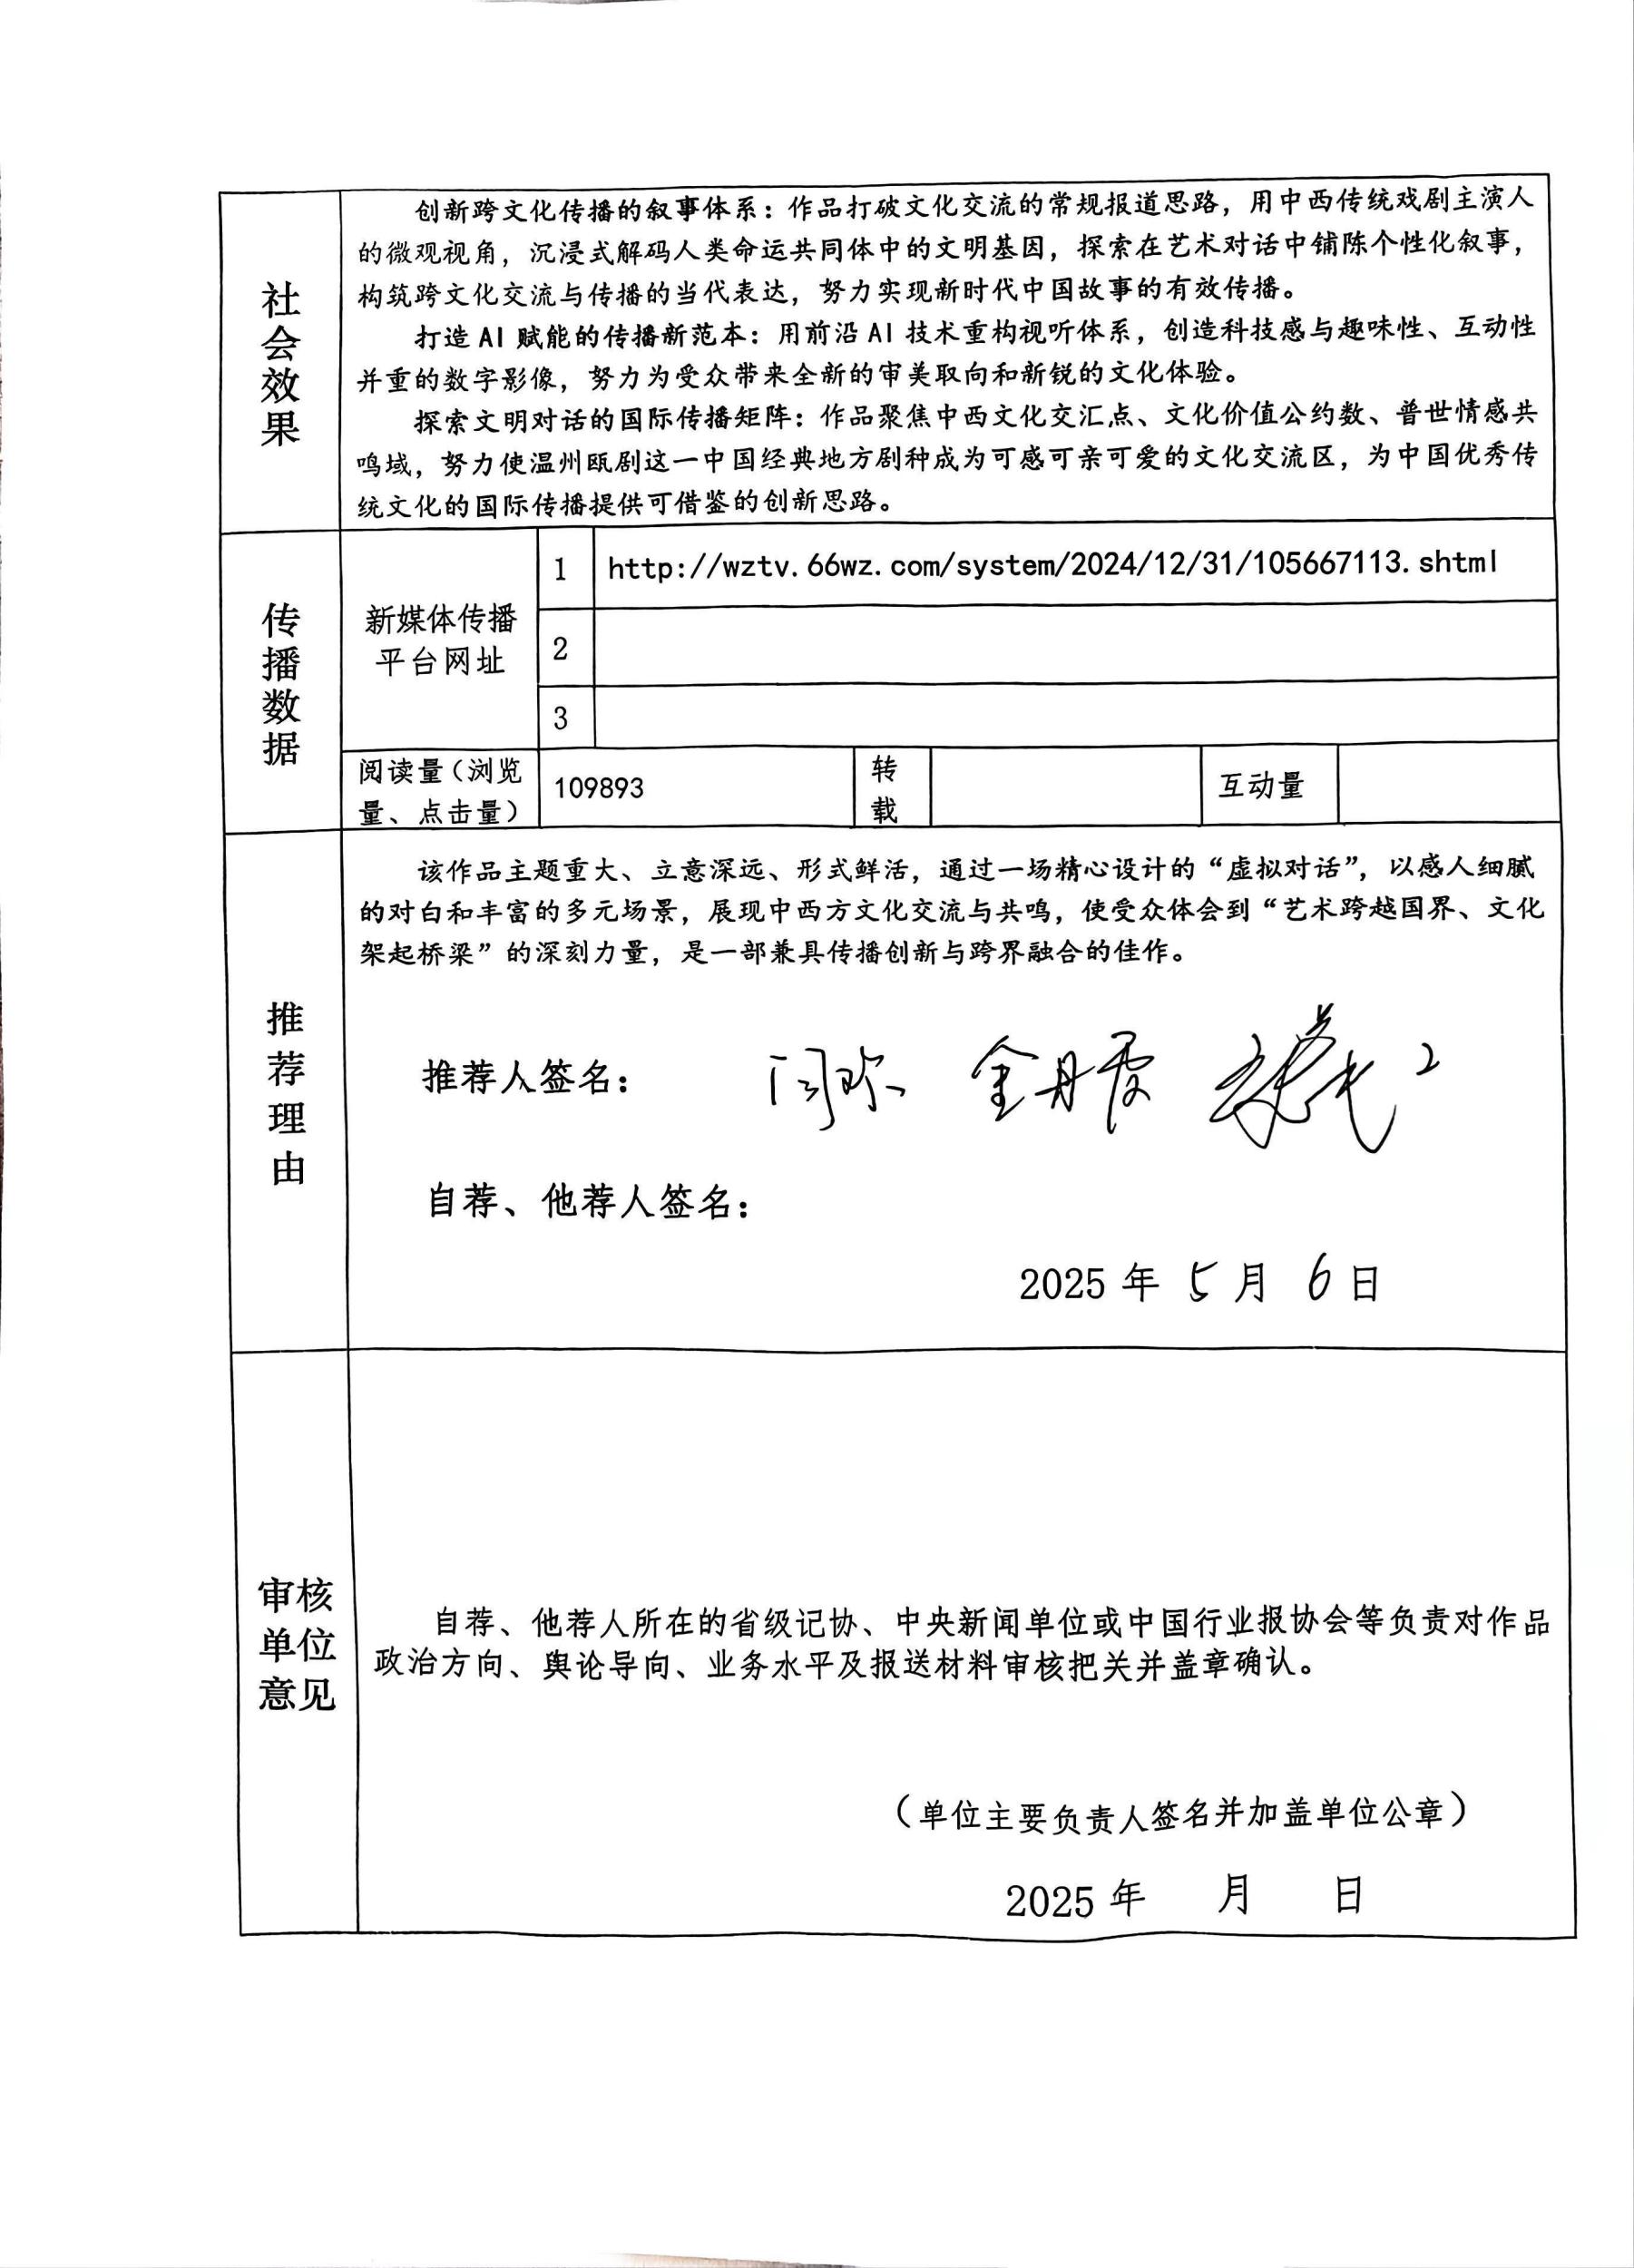 社会效果
创新跨文化传播的叙事体系：作品打破文化交流的常规报道思路，用中西传统戏剧主演人
的微观视角，沉浸式解码人类命运共同体中的文明基因，探索在艺术对话中铺陈个性化叙事，
构筑跨文化交流与传播的当代表达，努力实现新时代中国故事的有效传播。
打造AI赋能的传播新范本：用前沿AI技术重构视听体系，创造科技感与趣味性、互动性
并重的数字影像，努力为受众带来全新的审美取向和新锐的文化体验。
探索文明对话的国际传播矩阵：作品聚焦中西文化交汇点、文化价值公约数、普世情感共
鸣域，努力使温州瓯剧这一中国经典地方剧种成为可感可亲可爱的文化交流区，为中国优秀传
统文化的国际传播提供可借鉴的创新思路。
传播数据
新媒体传播
平台网址
1 http://wztv.66wz.com/system/2024/12/31/105667113.shtml
2
3
阅读量（浏览
量、点击量）
109893
转载
互动量
推荐理由
该作品主题重大、立意深远、形式鲜活，通过一场精心设计的“虚拟对话”，以感人细腻
的对白和丰富的多元场景，展现中西方文化交流与共鸣，使受众体会到“艺术跨越国界、文化
架起桥梁”的深刻力量，是一部兼具传播创新与跨界融合的佳作。
推荐人签名： 金丹霞
自荐、他荐人签名：
2025 年 5 月 6 日
审核
单位
意见
自荐、他荐人所在的省级记协、中央新闻单位或中国行业报协会等负责对作品
政治方向、舆论导向、业务水平及报送材料审核把关并盖章确认。
（单位主要负责人签名并加盖单位公章）
2025 年 月 日